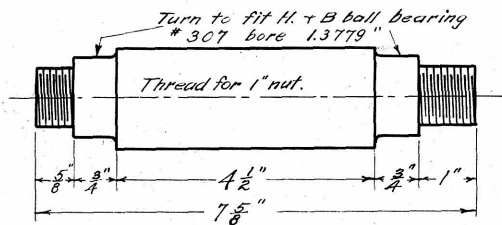 Turn to fit H. + B ball bearing
# 307 bore 1.3779"
Thread for 1" nut.
5/8" 3/4" 4 1/2" 3/4" 1"
7 5/8"